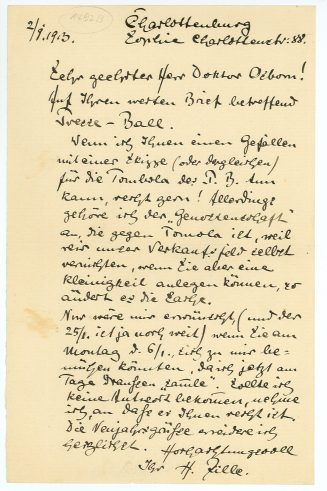 2/I. 1913.
Charlottenburg
Sophie Charlottenstr: 88.
Sehr geehrter Herr Doktor Osborn!
Auf Ihren werten Brief betreffend
Presse-Ball.
Wenn ich Ihnen einen Gefallen
mit einer Skizze (oder dergleichen)
für die Tombola des P. B. thun
kann, recht gern! Allerdings
gehöre ich der „Genossenschaft"
an, die gegen Tombola ist, weil
wir unser Verkaufsfeld selbst
vernichten, wenn Sie aber eine
kleinigkeit anlegen können, so
ändert es die Sache.
Nur wäre mir erwünscht, (und der
25/I. ist ja noch weit) wenn Sie am
Montag d. 6/I. sich zu mir be-
mühen könnten, da ich jetzt am
Tage draussen „aule" – Sollte ich
keine Antwort bekommen, nehme
ich an daß er Ihnen recht ist.
Die Neujahrsgrüße erwidere ich
herzlichst. Hochachtungsvoll
Ihr H. Zille.